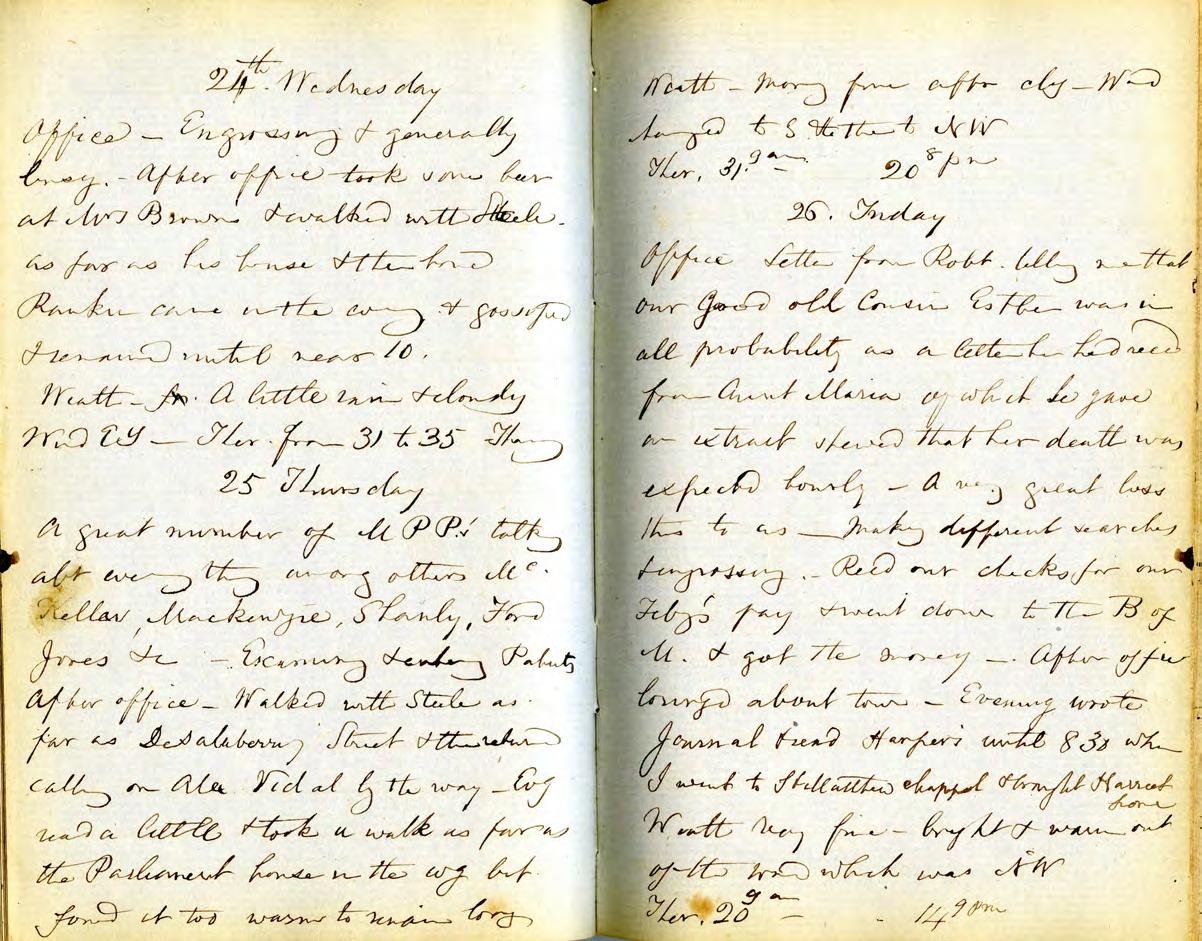 24th. Wednesday
Office - Engrossing & generally
busy. - After office took some beer
at Mrs Browns & walked with Steele -
as far as his house & then home
Rankin came in the evng & gossiped
& remained until near 10.
Weath - A little rain & cloudy
Wind Ely - Ther. from 31 to 35 Thawg
25 Thursday
A great number of M P P.s talkg
abt every thing among others Mc.
Kellar, Mackenzie, Shanly, Ford
Jones &c - Examining & entering Patents
After office - Walked with Steele as
far as DeSalaberry Street & then return
calling on Alex Vidal by the way - Evg
read a little & took a walk as far as
the Parliament house in the evg but
found it too warm to remain long
Weath - Morng fine after cldy - Wind
changed to S & then to NW
Ther. 31. 9 am 20 8 pm
26. Friday
Office Letter from Robt. telling me that
our Good old Cousin Esther was in
all probability as a letter he had recd
from Aunt Maria of which he gave
an extract shewed that her death was
expected hourly - A very great loss
this to us - Making different searches
& engrossing. - Recd our checks for our
Feby's pay & went down to the B of
M. & got the money -. After office
lounged about town - Evening wrote
Journal & read Harpers until 8 30 when
I went to chappel & brought Harriet
home
Weath very fine - bright & warm out
of the wind which was NW
Ther. 20 9 am - 14 9 pm